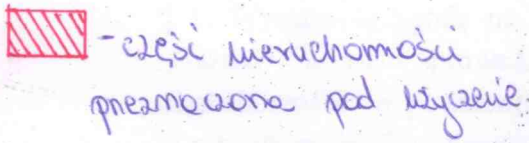 - część nieruchomości
przeznaczona pod użyczenie